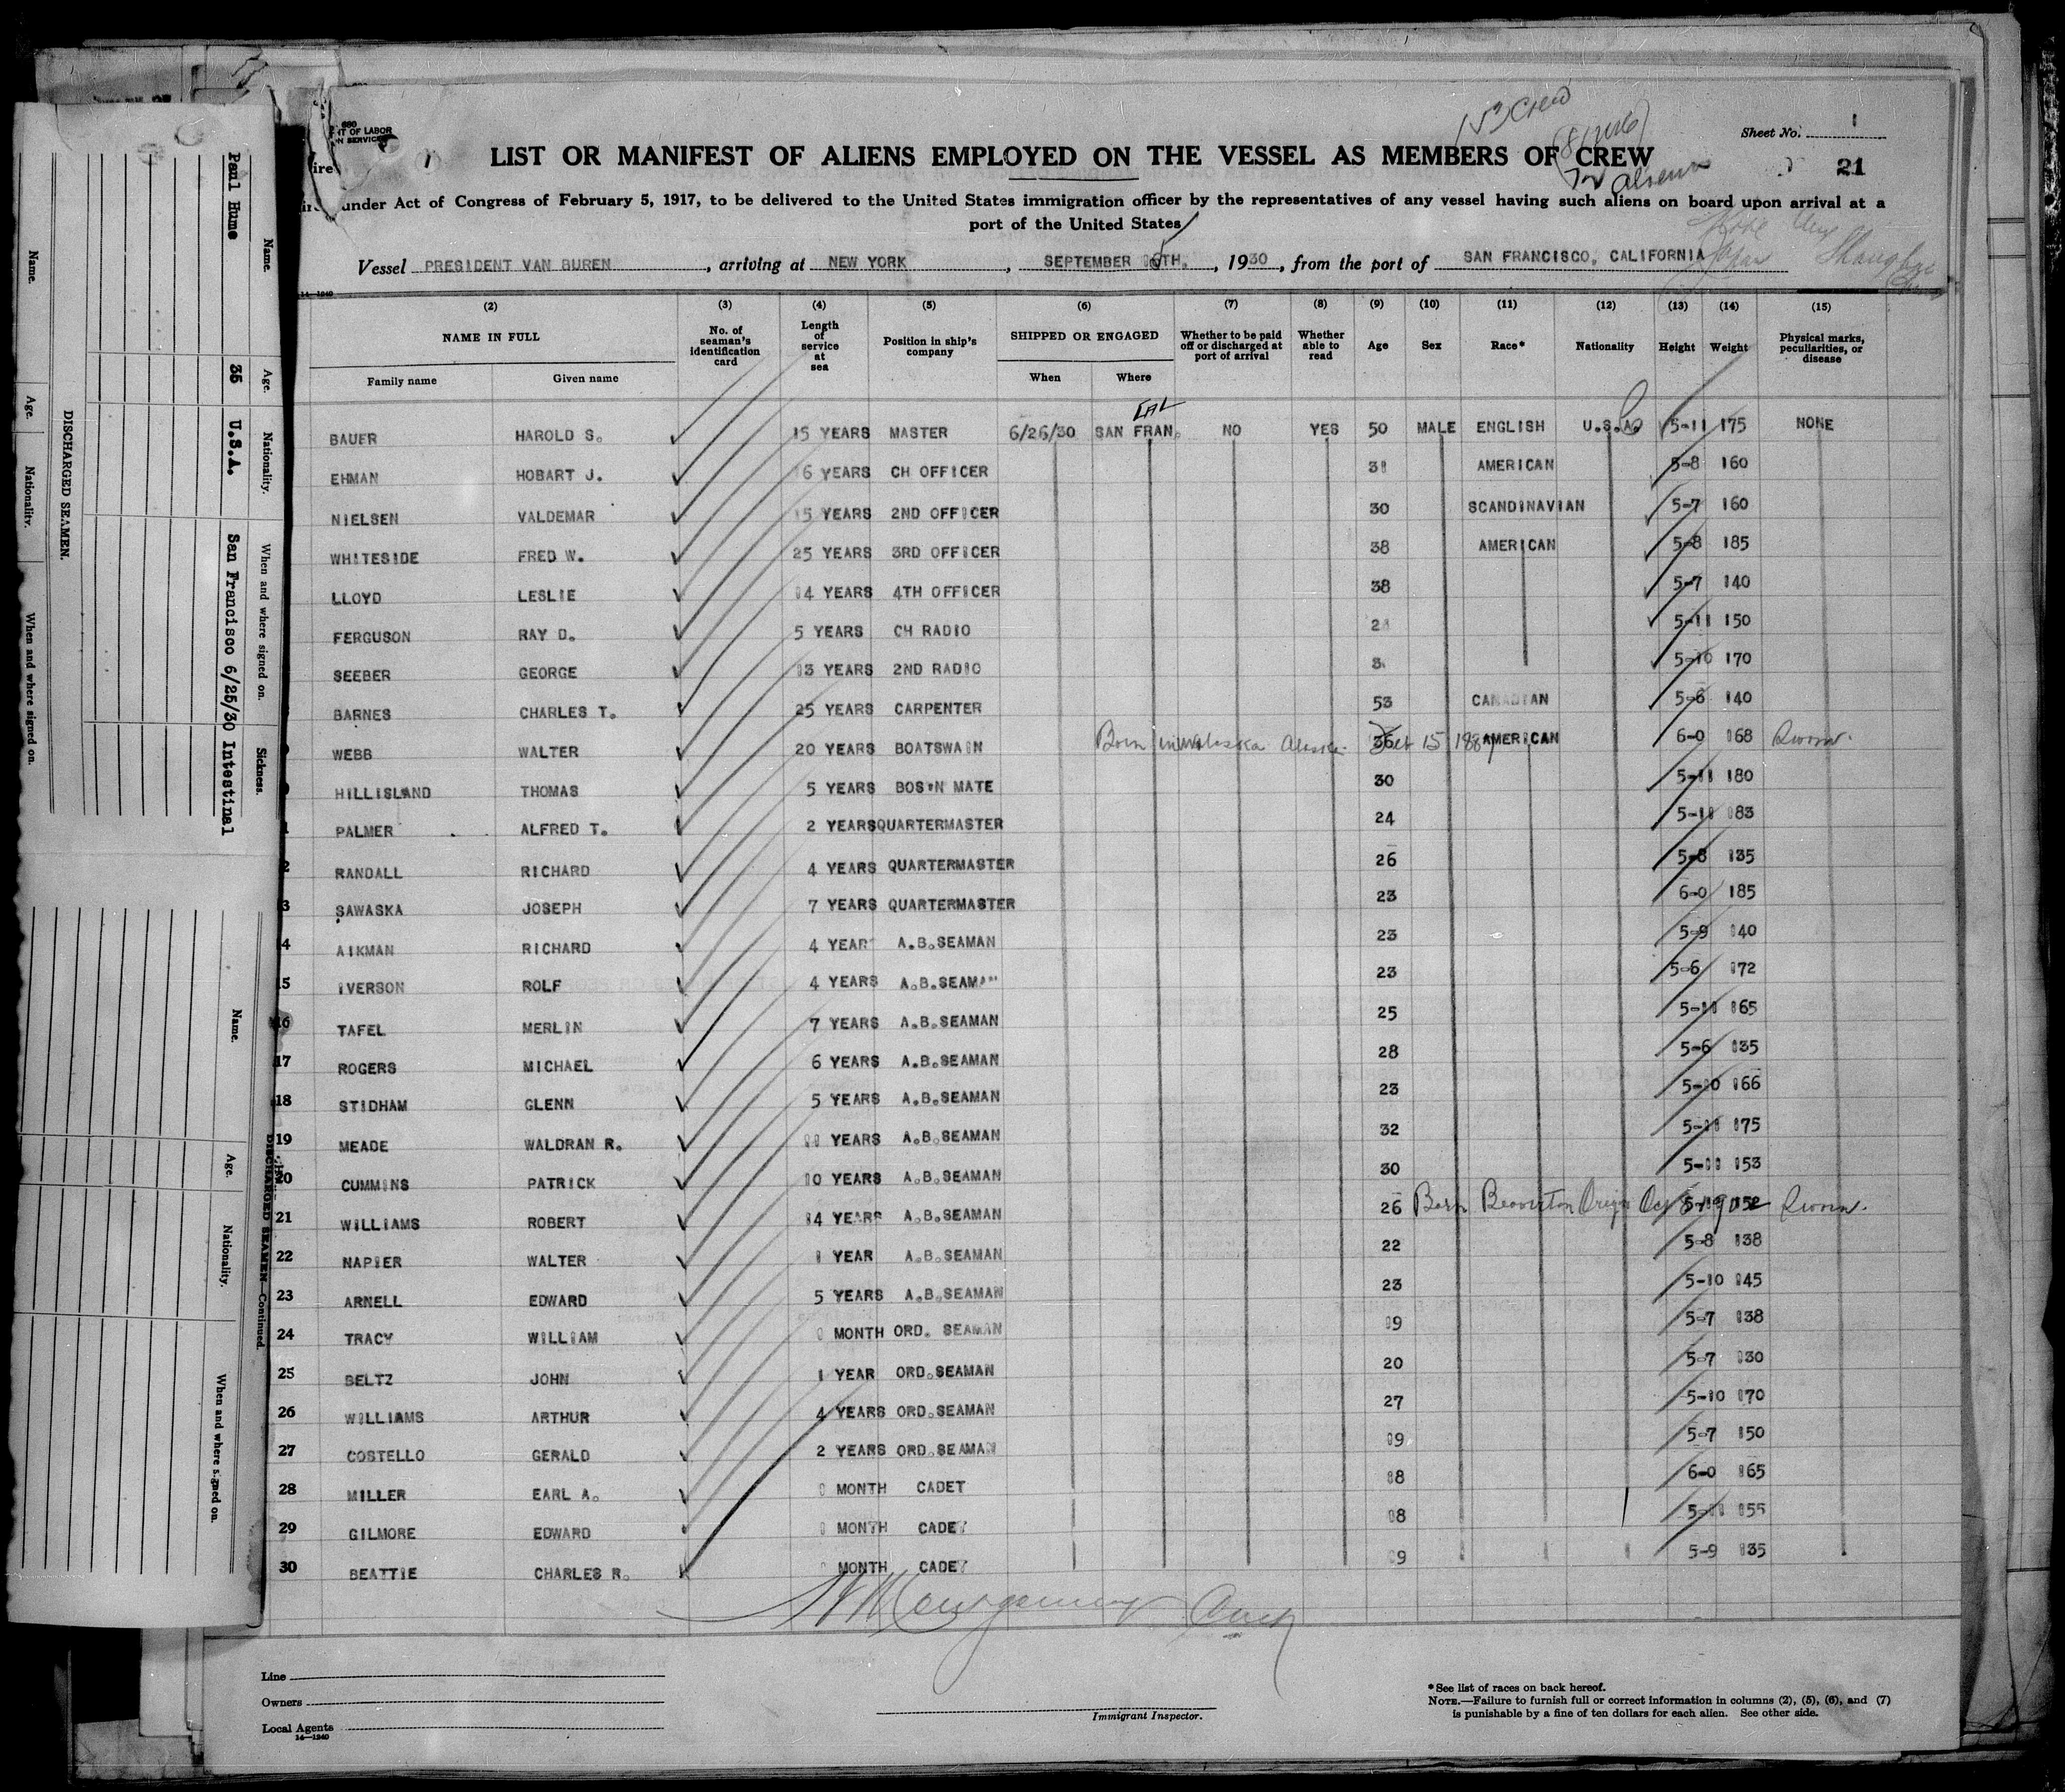 660
NT OF LABOR
N SERVICE
Sheet No. 1
LIST OR MANIFEST OF ALIENS EMPLOYED ON THE VESSEL AS MEMBERS OF CREW
21
under Act of Congress of February 5, 1917, to be delivered to the United States immigration officer by the representatives of any vessel having such aliens on board upon arrival at a
port of the United States
Vessel PRESIDENT VAN BUREN, arriving at NEW YORK, SEPTEMBER TH. , 1930, from the port of SAN FRANCISCO, CALIFORNIA
Shanghai
14-1240
(2) (3) (4) (5) (6) (7) (8) (9) (10) (11) (12) (13) (14) (15)
NAME IN FULL No. of seaman's identification card Length of service at sea Position in ship's company SHIPPED OR ENGAGED Whether to be paid off or discharged at port of arrival Whether able to read Age Sex Race* Nationality Height Weight Physical marks, peculiarities, or disease
Family name Given name When Where
CAL
BAUER HAROLD S. 15 YEARS MASTER 6/26/30 SAN FRAN. NO YES 50 MALE ENGLISH U.S.A. 5-11 175 NONE
EHMAN HOBART J. 16 YEARS CH OFFICER 31 AMERICAN 5-8 160
NIELSEN VALDEMAR 15 YEARS 2ND OFFICER 30 SCANDINAVIAN 5-7 160
WHITESIDE FRED W. 25 YEARS 3RD OFFICER 38 AMERICAN 5-8 185
LLOYD LESLIE 14 YEARS 4TH OFFICER 38 5-7 140
FERGUSON RAY D. 5 YEARS CH RADIO 5-11 150
SEEBER GEORGE 13 YEARS 2ND RADIO 5-10 170
BARNES CHARLES T. 25 YEARS CARPENTER 53 CANADIAN 5-6 140
WEBB WALTER 20 YEARS BOATSWAIN Born Unalaska Alaska 36 15 AMERICAN 6-0 168
HILLISLAND THOMAS 5 YEARS BOS'N MATE 30 5-11 180
PALMER ALFRED T. 2 YEARS QUARTERMASTER 24 5-11 183
RANDALL RICHARD 4 YEARS QUARTERMASTER 26 5-8 135
3 SAWASKA JOSEPH 7 YEARS QUARTERMASTER 23 6-0 185
4 AIKMAN RICHARD 4 YEAR A.B.SEAMAN 23 5-9 140
5 IVERSON ROLF 4 YEARS A.B.SEAMAN 23 5-6 172
16 TAFEL MERLIN 7 YEARS A.B.SEAMAN 25 5-11 165
17 ROGERS MICHAEL 6 YEARS A.B.SEAMAN 28 5-6 135
18 STIDHAM GLENN 5 YEARS A.B.SEAMAN 23 5-10 166
19 MEADE WALDRAN R. 11 YEARS A.B.SEAMAN 32 5-11 175
20 CUMMINS PATRICK 10 YEARS A.B.SEAMAN 30 5-11 153
21 WILLIAMS ROBERT 14 YEARS A.B.SEAMAN 26 Born Beaverton 152
22 NAPIER WALTER 1 YEAR A.B.SEAMAN 22 5-8 138
23 ARNELL EDWARD 5 YEARS A.B.SEAMAN 23 5-10 145
24 TRACY WILLIAM 1 MONTH ORD. SEAMAN 19 5-7 138
25 BELTZ JOHN 1 YEAR ORD.SEAMAN 20 5-7 130
26 WILLIAMS ARTHUR 4 YEARS ORD.SEAMAN 27 5-10 170
27 COSTELLO GERALD 2 YEARS ORD.SEAMAN 19 5-7 150
28 MILLER EARL A. 1 MONTH CADET 18 6-0 165
29 GILMORE EDWARD 1 MONTH CADET 18 5-11 155
30 BEATTIE CHARLES R. MONTH CADET 19 5-9 135
Montgomery
Line
Owners
Local Agents
14-1240
Immigrant Inspector.
*See list of races on back hereof.
NOTE.—Failure to furnish full or correct information in columns (2), (5), (6), and (7)
is punishable by a fine of ten dollars for each alien. See other side.
Name. Age. Nationality. When and where signed on. Sickness.
Paul Hume 35 U.S.A. San Francisco 6/25/30 Intestinal
DISCHARGED SEAMEN.
Name. Age. Nationality. When and where signed on.
DISCHARGED SEAMEN—Continued.
Name. Age. Nationality. When and where signed on.